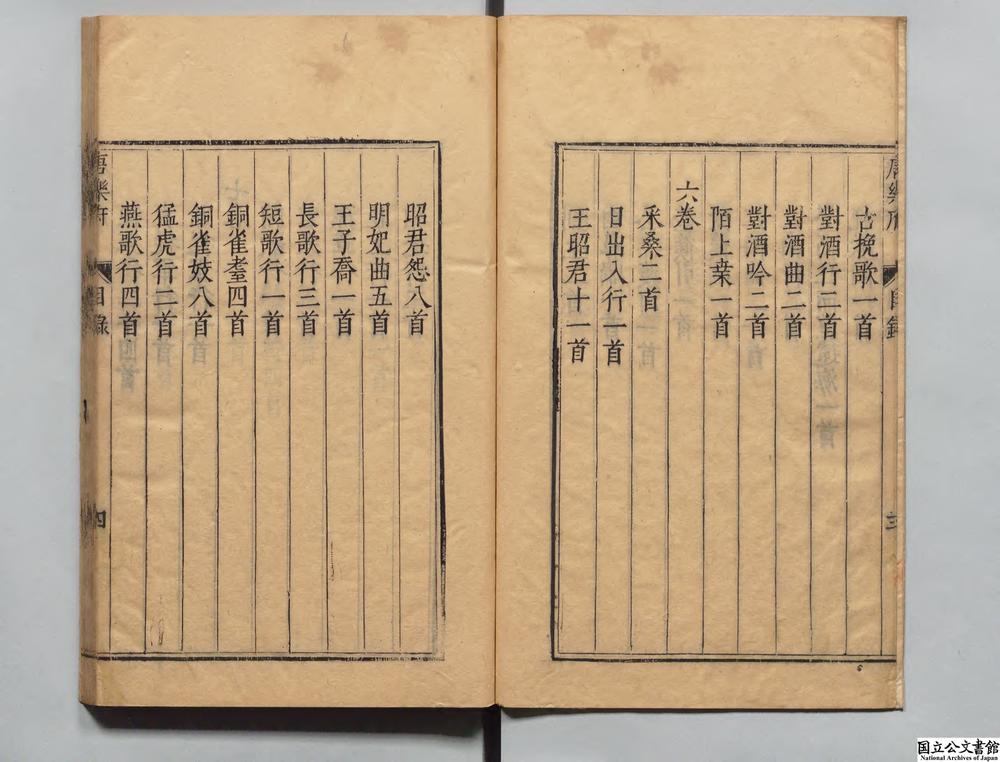 唐樂府
目錄
三
古挽歌一首
對酒行二首
對酒曲二首
對酒吟二首
陌上桒一首
六卷
采桑二首
日出入行一首
王昭君十一首
昭君怨八首
明妃曲五首
王子喬一首
長歌行三首
短歌行一首
銅雀臺四首
銅雀妓八首
猛虎行二首
燕歌行四首
唐樂府
目錄
四
国立公文書館
National Archives of Japan